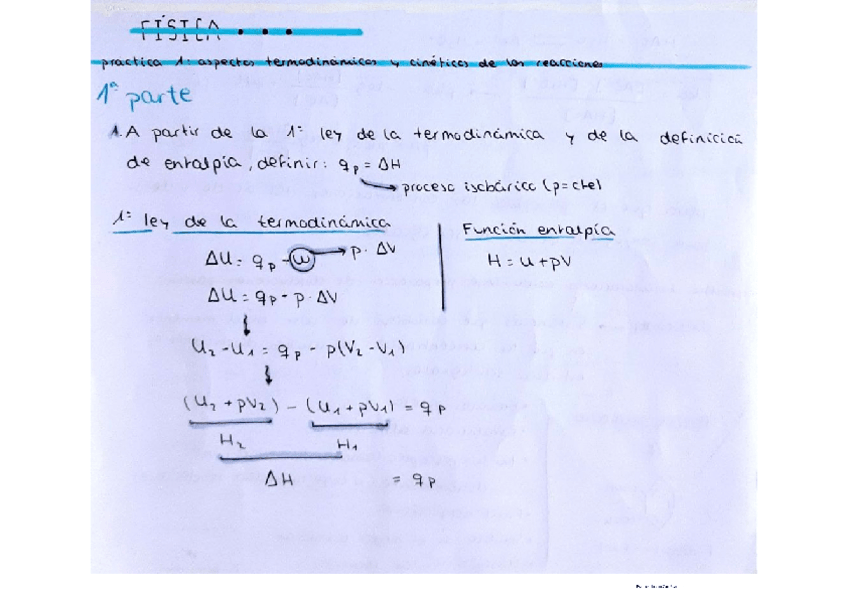 FÍSICA...
práctica 1: aspectos termodinámicos y cinéticos de las reacciones
1ª parte
1. A partir de la 1ª ley de la termodinámica y de la definición
de entalpía, definir: qp = ΔH
→ proceso isobárico (p=cte)
1ª ley de la termodinámica
ΔU = qp - w → p · ΔV
ΔU = qp - p · ΔV
U2 - U1 = qp - p(V2 - V1)
(U2 + pV2) - (U1 + pV1) = qp
H2 H1
ΔH = qp
Función entalpía
H = U + pV